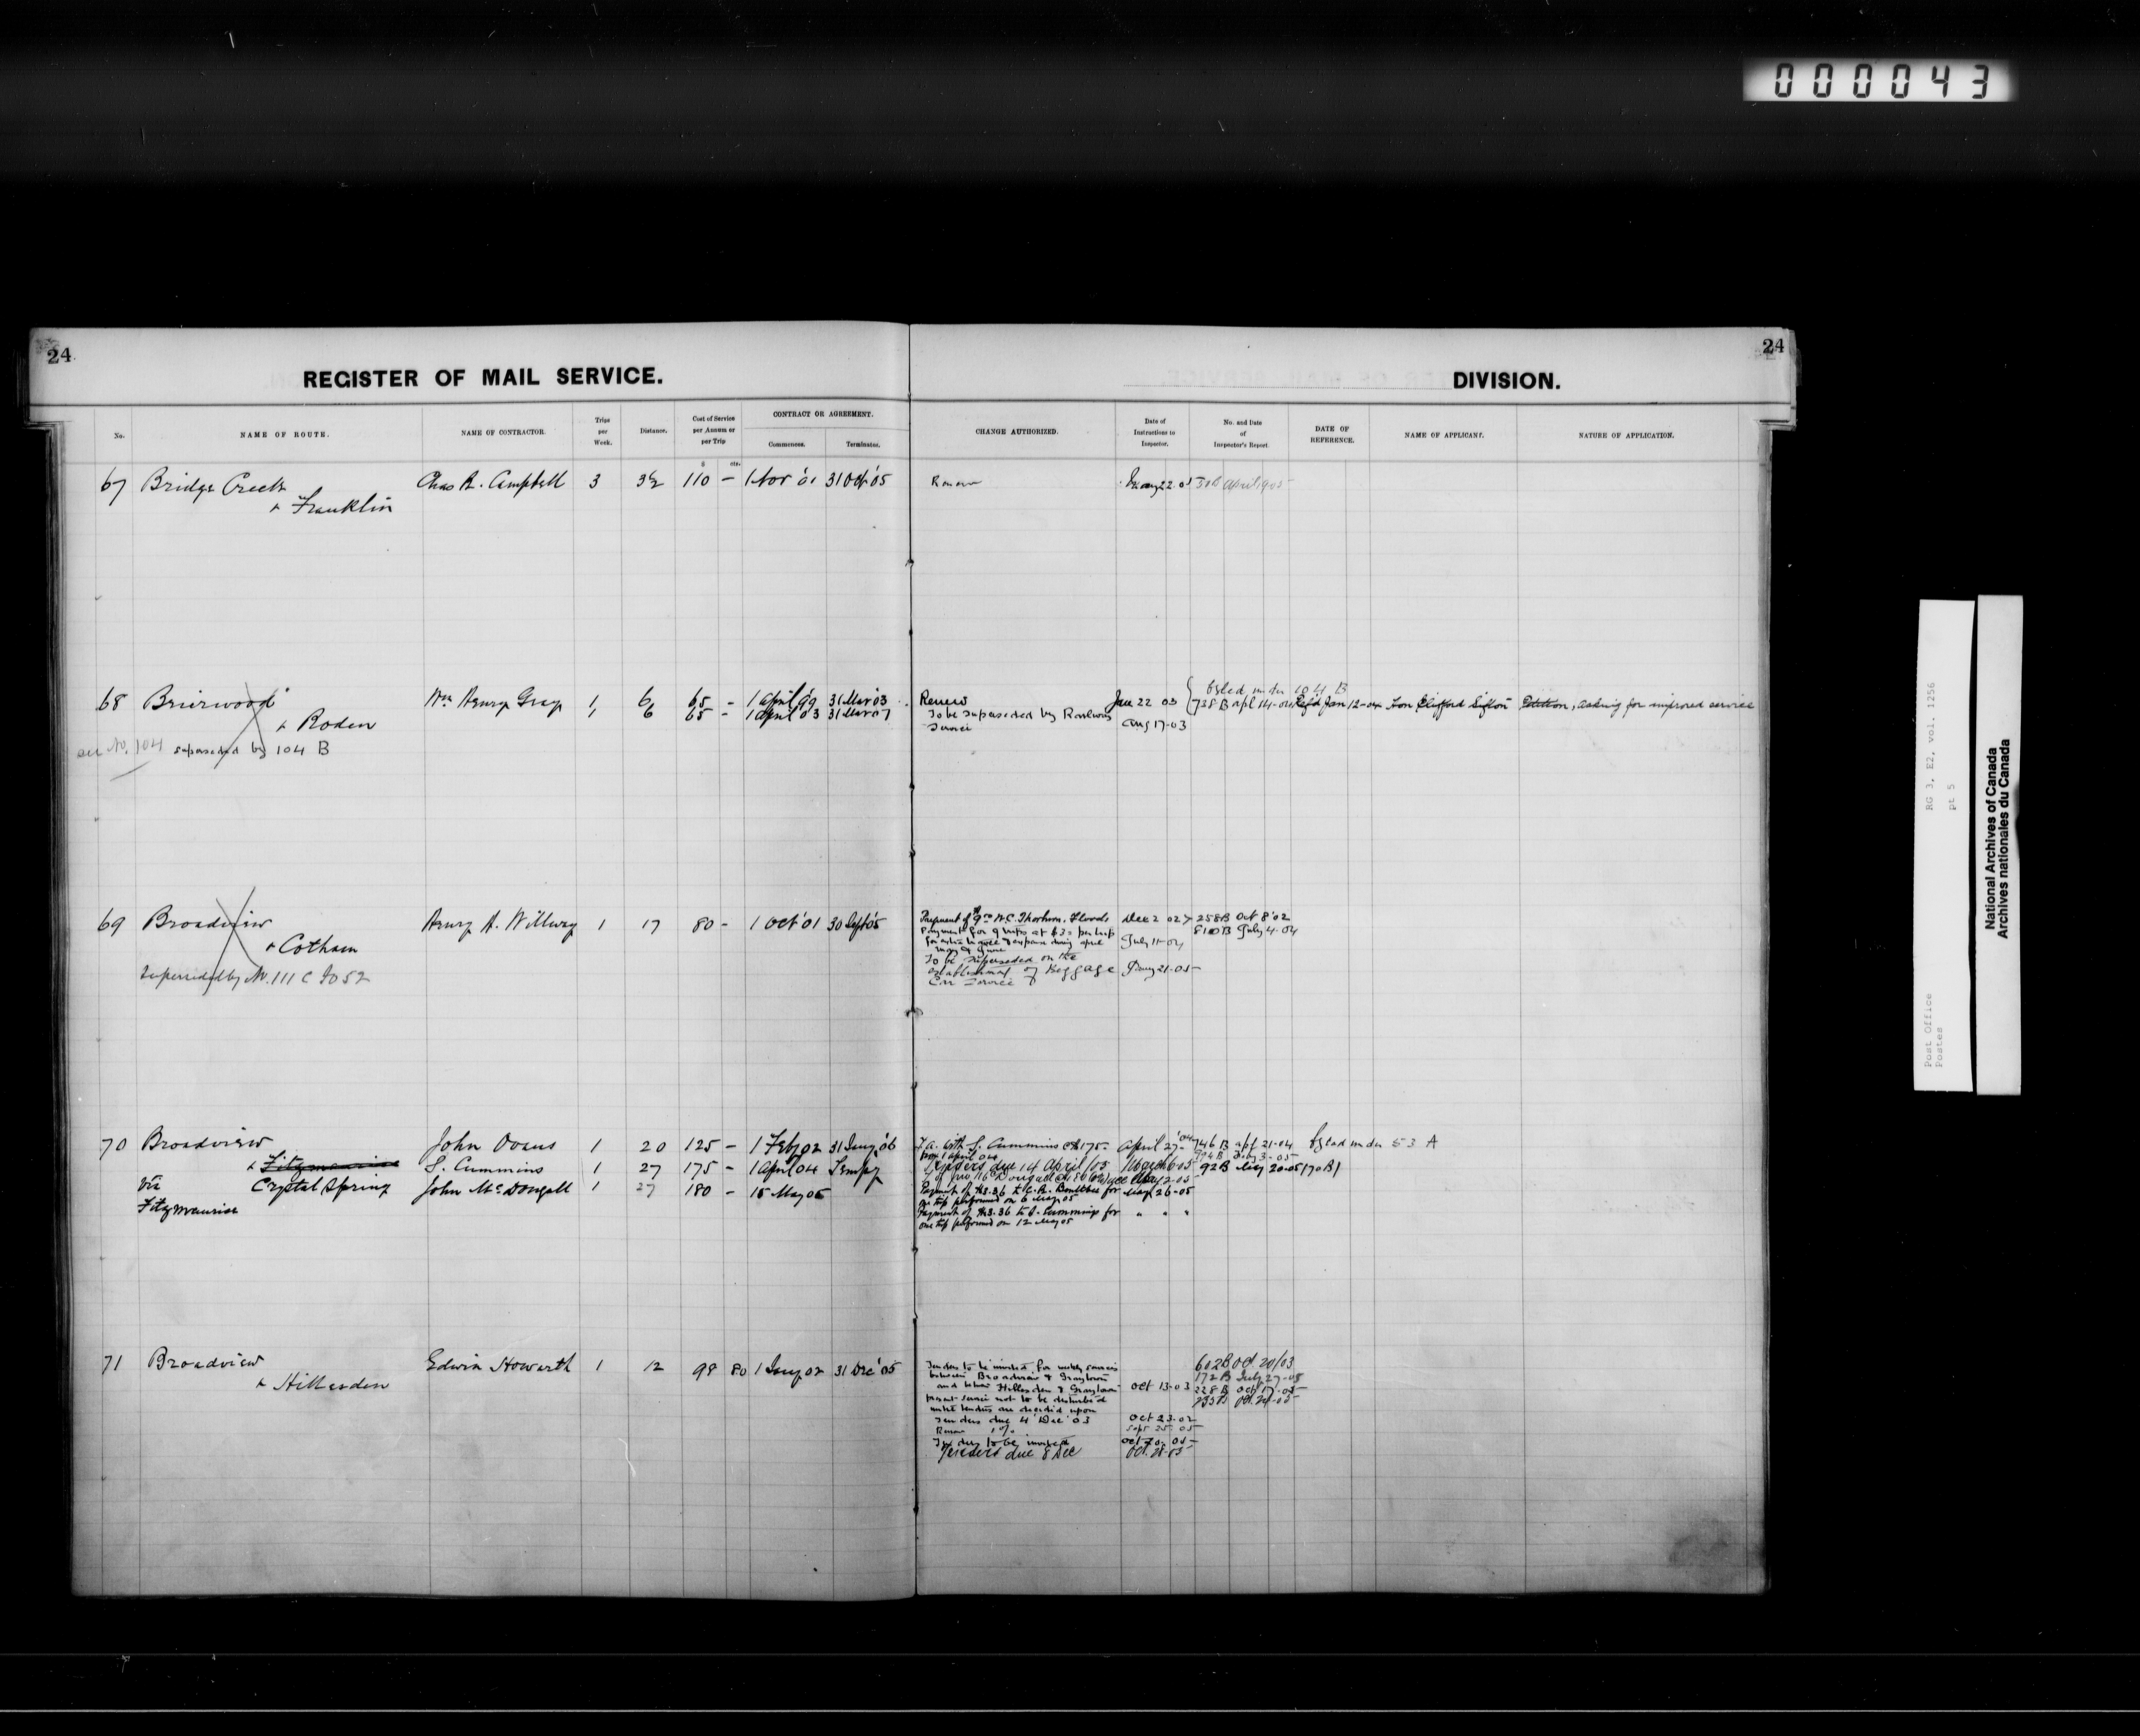 000043
24
24
REGISTER OF MAIL SERVICE.
DIVISION.
No.
NAME OF ROUTE.
NAME OF CONTRACTOR.
Trips per Week.
Distance.
Cost of Service per Annum or per Trip
CONTRACT OR AGREEMENT.
Commences.
Terminates.
CHANGE AUTHORIZED.
Date of Instructions to Inspector.
No. and Date of Inspector's Report
DATE OF REFERENCE.
NAME OF APPLICANT.
NATURE OF APPLICATION.
$ cts.
67 Bridge Creek Chas R. Campbell 3 3½ 110 - 1 Nov '01 31 Oct '05 Renew
& Franklin
68 Brierwood Wm Henry Gray 1 6 65 - 1 April '99 31 Mar '03 Renew Jan 22 03 738 B apl 14-04 Ref'd Jan 12-04 Hon Clifford Sifton Petition, asking for improved service
& Roden 1 6 65 - 1 April 03 31 Mar 07 To be superseded by Railway Aug 17-03
Service
see No. 104 superseded by 104 B
69 Broadview Henry A. Willway 1 17 80 - 1 Oct '01 30 Sept '05 Dec 2 02 258B Oct 8 '02
& Cotham Payment for 9 trips at $3 per trip July 11-04 810B July 4-04
May & June
To be superseded on the
establishment of Baggage Jany 21-05
Car Service
Superseded by No. 111 C
70 Broadview John Ovans 1 20 125 - 1 Feby 02 31 Jany '06 T.A. with S. Cummins @ $175- April 27-'04 746 B apl 21-04 Asled under 53 A
from 1 April 04
& Fitzmaurice S. Cummins 1 27 175 - 1 April 04 Tempy Tenders due 14 April/05 March 6-05 92B May 20-05
via Crystal Spring John McDougall 1 27 180 - 15 May 05
Fitzmaurice
Payment of $3.36 to for May 26-05
one trip performed on 6 May 05
Payment of $3.36 to S. Cummings for " " "
one trip performed on 12 May 05
71 Broadview Edwin Howarth 1 12 98 80 1 Jany 02 31 Dec '05 Tenders to be invited for weekly service 602B Oct 20/03
& Hillesden between Broadview & Graytown 172 B July 27-05
and between Hillesden & Graytown Oct 13-03 228 B Oct 17-05
present service not to be disturbed 235B Oct 24-05
until tenders are decided upon
Tenders due 4 Dec '03
Renew Sept 25-05
Tenders to be invited
Tenders due 8 Dec
Post Office RG 3, E2, vol. 1256
Postes pt 5
National Archives of Canada
Archives nationales du Canada